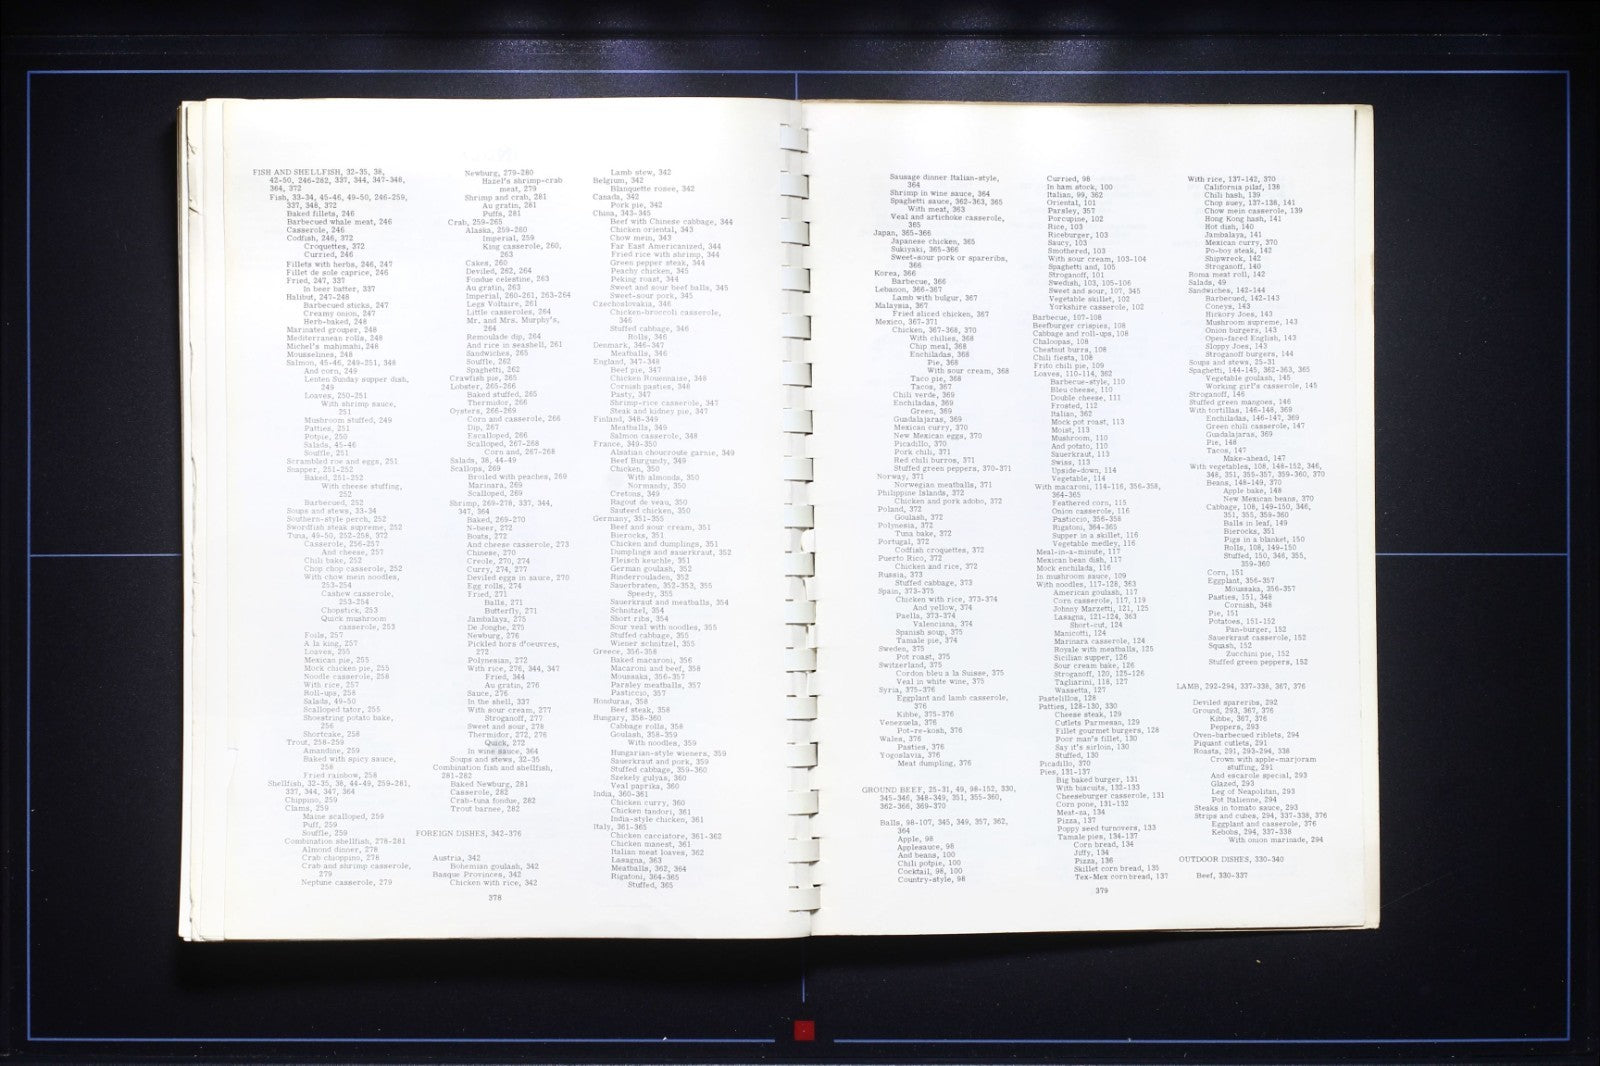 FISH AND SHELLFISH, 32-35, 38,
42-50, 246-282, 337, 344, 347-348,
364, 372
Fish, 33-34, 45-46, 49-50, 246-259,
337, 348, 372
Baked fillets, 246
Barbecued whale meat, 246
Casserole, 246
Codfish, 246, 372
Croquettes, 372
Curried, 246
Fillets with herbs, 246, 247
Fillet de sole caprice, 246
Fried, 247, 337
In beer batter, 337
Halibut, 247-248
Barbecued sticks, 247
Creamy onion, 247
Herb-baked, 248
Marinated grouper, 248
Mediterranean rolls, 248
Michel's mahimahi, 248
Mousselines, 248
Salmon, 45-46, 249-251, 348
And corn, 249
Lenten Sunday supper dish,
249
Loaves, 250-251
With shrimp sauce,
251
Mushroom stuffed, 249
Patties, 251
Potpie, 250
Salads, 45-46
Souffle, 251
Scrambled roe and eggs, 251
Snapper, 251-252
Baked, 251-252
With cheese stuffing,
252
Barbecued, 252
Soups and stews, 33-34
Southern-style perch, 252
Swordfish steak supreme, 252
Tuna, 49-50, 252-258, 372
Casserole, 256-257
And cheese, 257
Chili bake, 252
Chop chop casserole, 252
With chow mein noodles,
253-254
Cashew casserole,
253-254
Chopstick, 253
Quick mushroom
casserole, 253
Foils, 257
A la king, 257
Loaves, 255
Mexican pie, 255
Mock chicken pie, 255
Noodle casserole, 258
With rice, 257
Roll-ups, 258
Salads, 49-50
Scalloped tator, 255
Shoestring potato bake,
256
Shortcake, 258
Trout, 258-259
Amandine, 259
Baked with spicy sauce,
258
Fried rainbow, 258
Shellfish, 32-35, 38, 44-49, 259-281,
337, 344, 347, 364
Chippino, 259
Clams, 259
Maine scalloped, 259
Puff, 259
Souffle, 259
Combination shellfish, 278-281
Almond dinner, 278
Crab chioppino, 278
Crab and shrimp casserole,
279
Neptune casserole, 279
Newburg, 279-280
Hazel's shrimp-crab
meat, 279
Shrimp and crab, 281
Au gratin, 281
Puffs, 281
Crab, 259-265
Alaska, 259-260
Imperial, 259
King casserole, 260,
263
Cakes, 260
Deviled, 262, 264
Fondue celestine, 263
Au gratin, 263
Imperial, 260-261, 263-264
Legs Voltaire, 261
Little casseroles, 264
Mr. and Mrs. Murphy's,
264
Remoulade dip, 264
And rice in seashell, 261
Sandwiches, 265
Souffle, 262
Spaghetti, 262
Crawfish pie, 265
Lobster, 265-266
Baked stuffed, 265
Thermidor, 266
Oysters, 266-269
Corn and casserole, 266
Dip, 267
Escalloped, 266
Scalloped, 267-268
Corn and, 267-268
Salads, 38, 44-49
Scallops, 269
Broiled with peaches, 269
Marinara, 269
Scalloped, 269
Shrimp, 269-278, 337, 344,
347, 364
Baked, 269-270
N-beer, 272
Boats, 272
And cheese casserole, 273
Chinese, 270
Creole, 270, 274
Curry, 274, 277
Deviled eggs in sauce, 270
Egg rolls, 274
Fried, 271
Balls, 271
Butterfly, 271
Jambalaya, 275
De Jonghe, 275
Newburg, 276
Pickled hors d'oeuvres,
272
Polynesian, 272
With rice, 276, 344, 347
Fried, 344
Au gratin, 276
Sauce, 276
In the shell, 337
With sour cream, 277
Stroganoff, 277
Sweet and sour, 278
Thermidor, 272, 276
Quick, 272
In wine sauce, 364
Soups and stews, 32-35
Combination fish and shellfish,
281-282
Baked Newburg, 281
Casserole, 282
Crab-tuna fondue, 282
Trout barnee, 282
FOREIGN DISHES, 342-376
Austria, 342
Bohemian goulash, 342
Basque Provinces, 342
Chicken with rice, 342
Lamb stew, 342
Belgium, 342
Blanquette rosee, 342
Canada, 342
Pork pie, 342
China, 343-345
Beef with Chinese cabbage, 344
Chicken oriental, 343
Chow mein, 343
Far East Americanized, 344
Fried rice with shrimp, 344
Green pepper steak, 344
Peachy chicken, 345
Peking roast, 344
Sweet and sour beef balls, 345
Sweet-sour pork, 345
Czechoslovakia, 346
Chicken-broccoli casserole,
346
Stuffed cabbage, 346
Rolls, 346
Denmark, 346-347
Meatballs, 346
England, 347-348
Beef pie, 347
Chicken Rouennaise, 348
Cornish pasties, 348
Pasty, 347
Shrimp-rice casserole, 347
Steak and kidney pie, 347
Finland, 348-349
Meatballs, 349
Salmon casserole, 348
France, 349-350
Alsatian choucroute garnie, 349
Beef Burgundy, 349
Chicken, 350
With almonds, 350
Normandy, 350
Cretons, 349
Ragout de veau, 350
Sauteed chicken, 350
Germany, 351-355
Beef and sour cream, 351
Bierocks, 351
Chicken and dumplings, 351
Dumplings and sauerkraut, 352
Fleisch keuchle, 351
German goulash, 352
Rinderrouladen, 352
Sauerbraten, 352-353, 355
Speedy, 355
Sauerkraut and meatballs, 354
Schnitzel, 354
Short ribs, 354
Sour veal with noodles, 355
Stuffed cabbage, 355
Wiener schnitzel, 355
Greece, 356-358
Baked macaroni, 356
Macaroni and beef, 358
Moussaka, 356-357
Parsley meatballs, 357
Pasticcio, 357
Honduras, 358
Beef steak, 358
Hungary, 358-360
Cabbage rolls, 358
Goulash, 358-359
With noodles, 359
Hungarian-style wieners, 359
Sauerkraut and pork, 359
Stuffed cabbage, 359-360
Szekely gulyas, 360
Veal paprika, 360
India, 360-361
Chicken curry, 360
Chicken tandori, 361
India-style chicken, 361
Italy, 361-365
Chicken cacciatore, 361-362
Chicken manest, 361
Italian meat loaves, 362
Lasagna, 363
Meatballs, 362, 364
Rigatoni, 364-365
Stuffed, 365
378
Sausage dinner Italian-style,
364
Shrimp in wine sauce, 364
Spaghetti sauce, 362-363, 365
With meat, 363
Veal and artichoke casserole,
365
Japan, 365-366
Japanese chicken, 365
Sukiyaki, 365-366
Sweet-sour pork or spareribs,
366
Korea, 366
Barbecue, 366
Lebanon, 366-367
Lamb with bulgur, 367
Malaysia, 367
Fried sliced chicken, 367
Mexico, 367-371
Chicken, 367-368, 370
With chilies, 368
Chip meal, 368
Enchiladas, 368
Pie, 368
With sour cream, 368
Taco pie, 368
Tacos, 367
Chili verde, 369
Enchiladas, 369
Green, 369
Guadalajaras, 369
Mexican curry, 370
New Mexican eggs, 370
Picadillo, 370
Pork chili, 371
Red chili burros, 371
Stuffed green peppers, 370-371
Norway, 371
Norwegian meatballs, 371
Philippine Islands, 372
Chicken and pork adobo, 372
Poland, 372
Goulash, 372
Polynesia, 372
Tuna bake, 372
Portugal, 372
Codfish croquettes, 372
Puerto Rico, 372
Chicken and rice, 372
Russia, 373
Stuffed cabbage, 373
Spain, 373-375
Chicken with rice, 373-374
And yellow, 374
Paella, 373-374
Valenciana, 374
Spanish soup, 375
Tamale pie, 374
Sweden, 375
Pot roast, 375
Switzerland, 375
Cordon bleu a la Suisse, 375
Veal in white wine, 375
Syria, 375-376
Eggplant and lamb casserole,
376
Kibbe, 375-376
Venezuela, 376
Pot-re-kosh, 376
Wales, 376
Pasties, 376
Yogoslavia, 376
Meat dumpling, 376
GROUND BEEF, 25-31, 49, 98-152, 330,
345-346, 348-349, 351, 355-360,
362-366, 369-370
Balls, 98-107, 345, 349, 357, 362,
364
Apple, 98
Applesauce, 98
And beans, 100
Chili potpie, 100
Cocktail, 98, 100
Country-style, 98
Curried, 98
In ham stock, 100
Italian, 99, 362
Oriental, 101
Parsley, 357
Porcupine, 102
Rice, 103
Riceburger, 103
Saucy, 103
Smothered, 103
With sour cream, 103-104
Spaghetti and, 105
Stroganoff, 101
Swedish, 103, 105-106
Sweet and sour, 107, 345
Vegetable skillet, 102
Yorkshire casserole, 102
Barbecue, 107-108
Beefburger crispies, 108
Cabbage and roll-ups, 108
Chaloopas, 108
Chestnut burrs, 108
Chili fiesta, 108
Frito chili pie, 109
Loaves, 110-114, 362
Barbecue-style, 110
Bleu cheese, 110
Double cheese, 111
Frosted, 112
Italian, 362
Mock pot roast, 113
Moist, 113
Mushroom, 110
And potato, 110
Sauerkraut, 113
Swiss, 113
Upside-down, 114
Vegetable, 114
With macaroni, 114-116, 356-358,
364-365
Feathered corn, 115
Onion casserole, 116
Pasticcio, 356-358
Rigatoni, 364-365
Supper in a skillet, 116
Vegetable medley, 116
Meal-in-a-minute, 117
Mexican bean dish, 117
Mock enchilada, 116
In mushroom sauce, 109
With noodles, 117-128, 363
American goulash, 117
Corn casserole, 117, 119
Johnny Marzetti, 121, 125
Lasagna, 121-124, 363
Short-cut, 124
Manicotti, 124
Marinara casserole, 124
Royale with meatballs, 125
Sicilian supper, 126
Sour cream bake, 126
Stroganoff, 120, 125-126
Tagliarini, 118, 127
Wassetta, 127
Pastelillos, 128
Patties, 128-130, 330
Cheese steak, 129
Cutlets Parmesan, 129
Fillet gourmet burgers, 128
Poor man's fillet, 130
Say it's sirloin, 130
Stuffed, 130
Picadillo, 370
Pies, 131-137
Big baked burger, 131
With biscuits, 132-133
Cheeseburger casserole, 131
Corn pone, 131-132
Meat-za, 134
Pizza, 137
Poppy seed turnovers, 133
Tamale pies, 134-137
Corn bread, 134
Jiffy, 134
Pizza, 136
Skillet corn bread, 135
Tex-Mex cornbread, 137
With rice, 137-142, 370
California pilaf, 138
Chili hash, 139
Chop suey, 137-138, 141
Chow mein casserole, 139
Hong Kong hash, 141
Hot dish, 140
Jambalaya, 141
Mexican curry, 370
Po-boy steak, 142
Shipwreck, 142
Stroganoff, 146
Roma meat roll, 142
Salads, 49
Sandwiches, 142-144
Barbecued, 142-143
Coneys, 143
Hickory Joes, 143
Mushroom supreme, 143
Onion burgers, 143
Open-faced English, 143
Sloppy Joes, 143
Stroganoff burgers, 144
Soups and stews, 25-31
Spaghetti, 144-145, 362-363, 365
Vegetable goulash, 145
Working girl's casserole, 145
Stroganoff, 146
Stuffed green mangoes, 146
With tortillas, 146-148, 369
Enchiladas, 146-147, 369
Green chili casserole, 147
Guadalajaras, 369
Pie, 148
Tacos, 147
Make-ahead, 147
With vegetables, 108, 148-152, 346,
348, 351, 355-357, 359-360, 370
Beans, 148-149, 370
Apple bake, 148
New Mexican beans, 370
Cabbage, 108, 149-150, 346,
351, 355, 359-360
Balls in leaf, 149
Bierocks, 351
Pigs in a blanket, 150
Rolls, 108, 149-150
Stuffed, 150, 346, 355,
359-360
Corn, 151
Eggplant, 356-357
Moussaka, 356-357
Pasties, 151, 348
Cornish, 348
Pie, 151
Potatoes, 151-152
Pan-burger, 152
Sauerkraut casserole, 152
Squash, 152
Zucchini pie, 152
Stuffed green peppers, 152
LAMB, 292-294, 337-338, 367, 376
Deviled spareribs, 292
Ground, 293, 367, 376
Kibbe, 367, 376
Peppers, 293
Oven-barbecued riblets, 294
Piquant cutlets, 291
Roasts, 291, 293-294, 338
Crown with apple-marjoram
stuffing, 291
And escarole special, 293
Glazed, 293
Leg of Neapolitan, 293
Pot Italienne, 294
Steaks in tomato sauce, 293
Strips and cubes, 294, 337-338, 376
Eggplant and casserole, 376
Kebobs, 294, 337-338
With onion marinade, 294
OUTDOOR DISHES, 330-340
Beef, 330-337
379